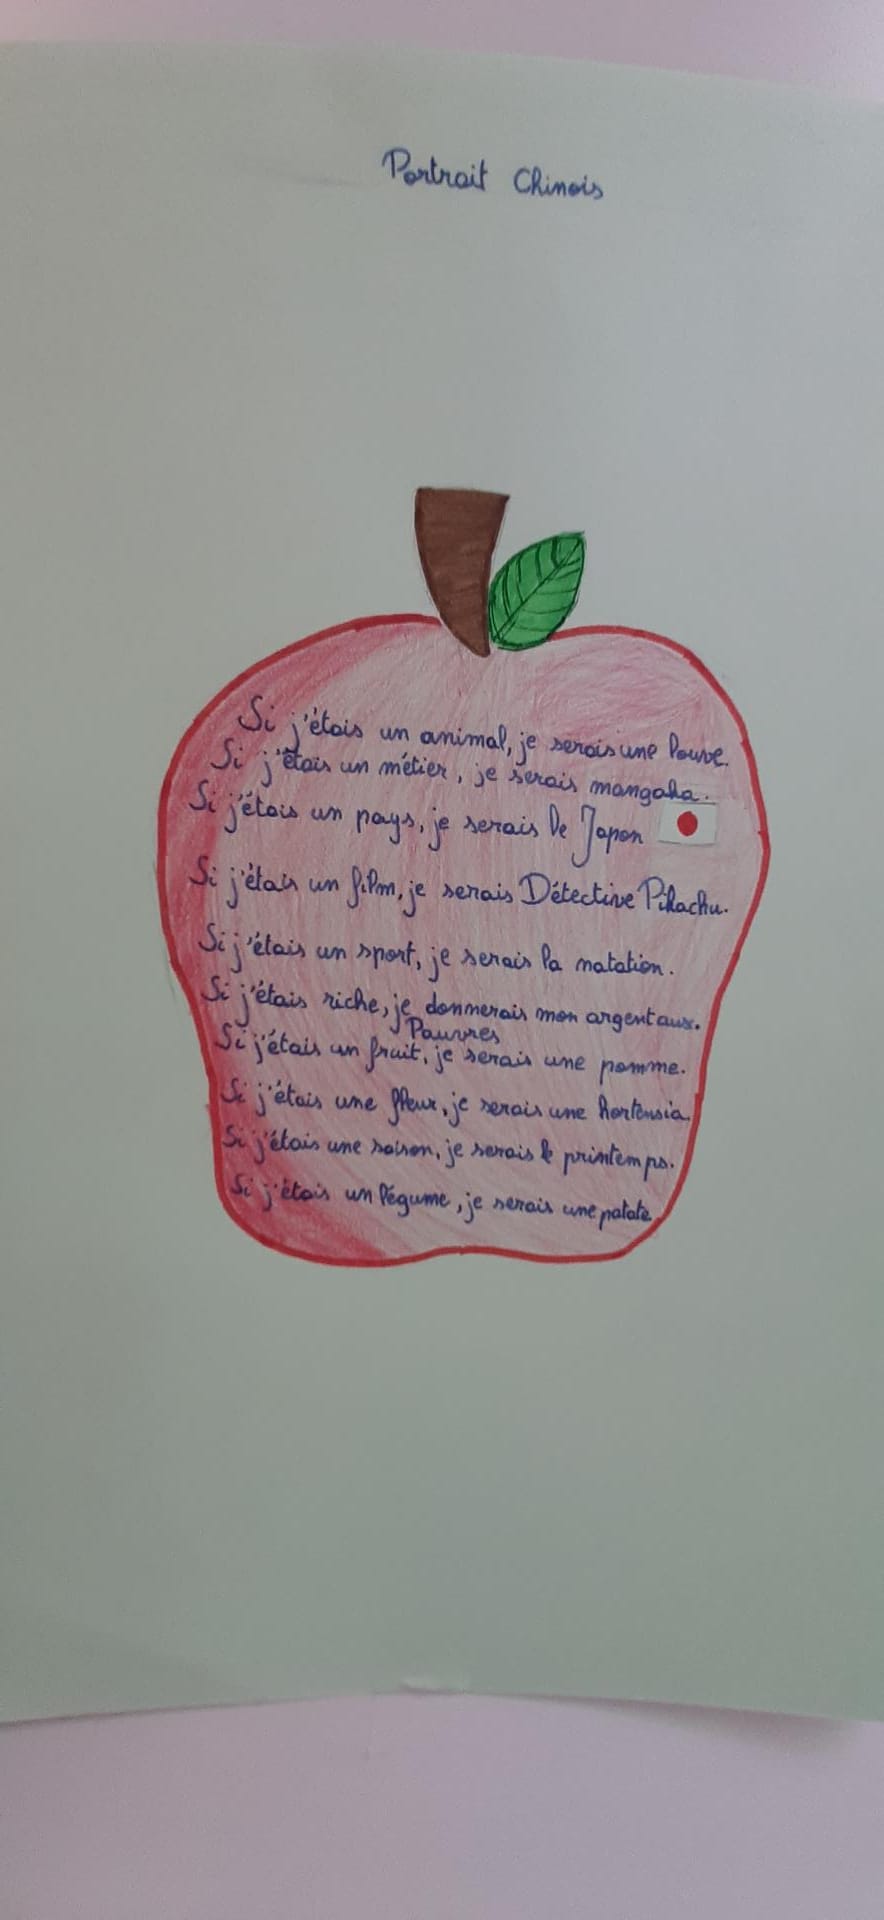 Portrait Chinois
Si j'étais un animal, je serais une louve.
Si j'étais un métier, je serais mangaka.
Si j'étais un pays, je serais le Japon
Si j'étais un film, je serais Détective Pikachu.
Si j'étais un sport, je serais la natation.
Si j'étais riche, je donnerais mon argent aux.
Pauvres
Si j'étais un fruit, je serais une pomme.
Si j'étais une fleur, je serais une hortensia.
Si j'étais une saison, je serais le printemps.
Si j'étais un légume, je serais une patate.